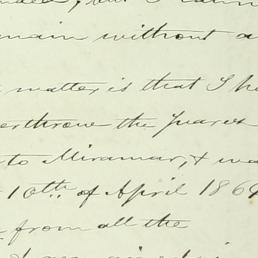 main without a
matter is that I h
erthrow the Juarez
to Miramar, & wa
10th of April 186
from all the